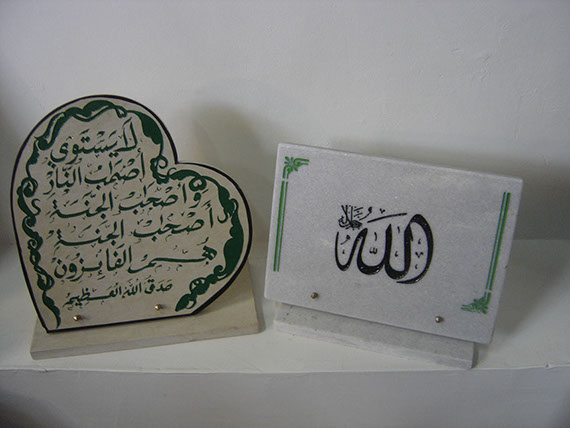 لا يَسْتَوِي
أَصْحٰبُ النَّارِ
وَأَصْحٰبُ الجَنَّةِ
أَصْحٰبُ الجَنَّةِ
هُمُ الفَائِزُونَ
صدق الله العظيم
الله
جل جلاله